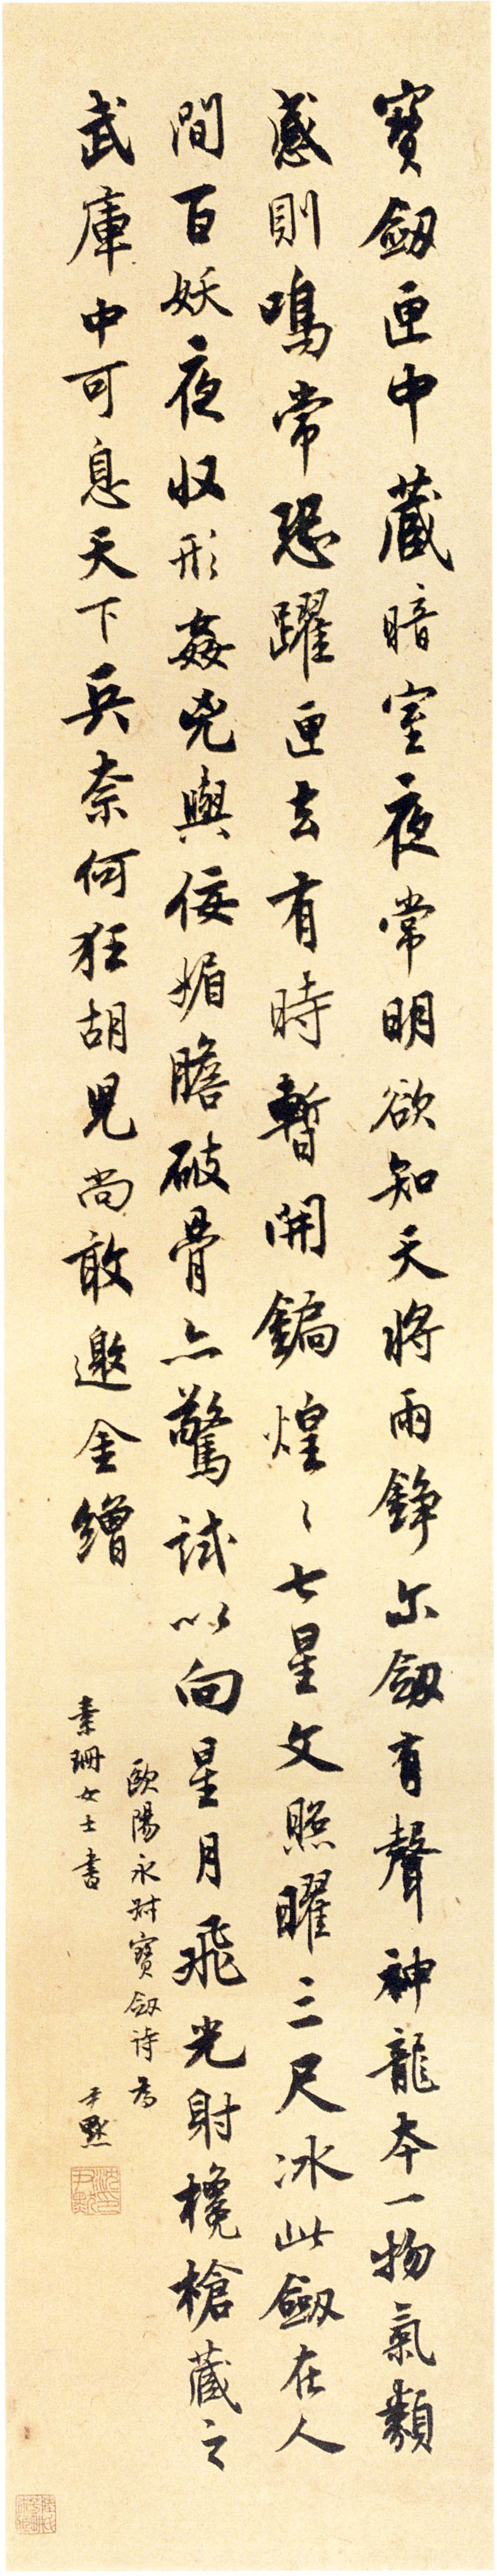 寶劔匣中藏暗室夜常明欲知天將雨錚尔劔有聲神龍本一物氣類
感則鳴常恐躍匣去有時暫開鐍煌〻七星文照曜三尺冰此劔在人
間百妖夜收形姦兇與佞媚膽破骨亦驚試以向星月飛光射欃槍藏之
武庫中可息天下兵奈何狂胡兒尚敢邀金繒
歐陽永叔寶劔诗為
素珊女士書
尹默
沈尹默印